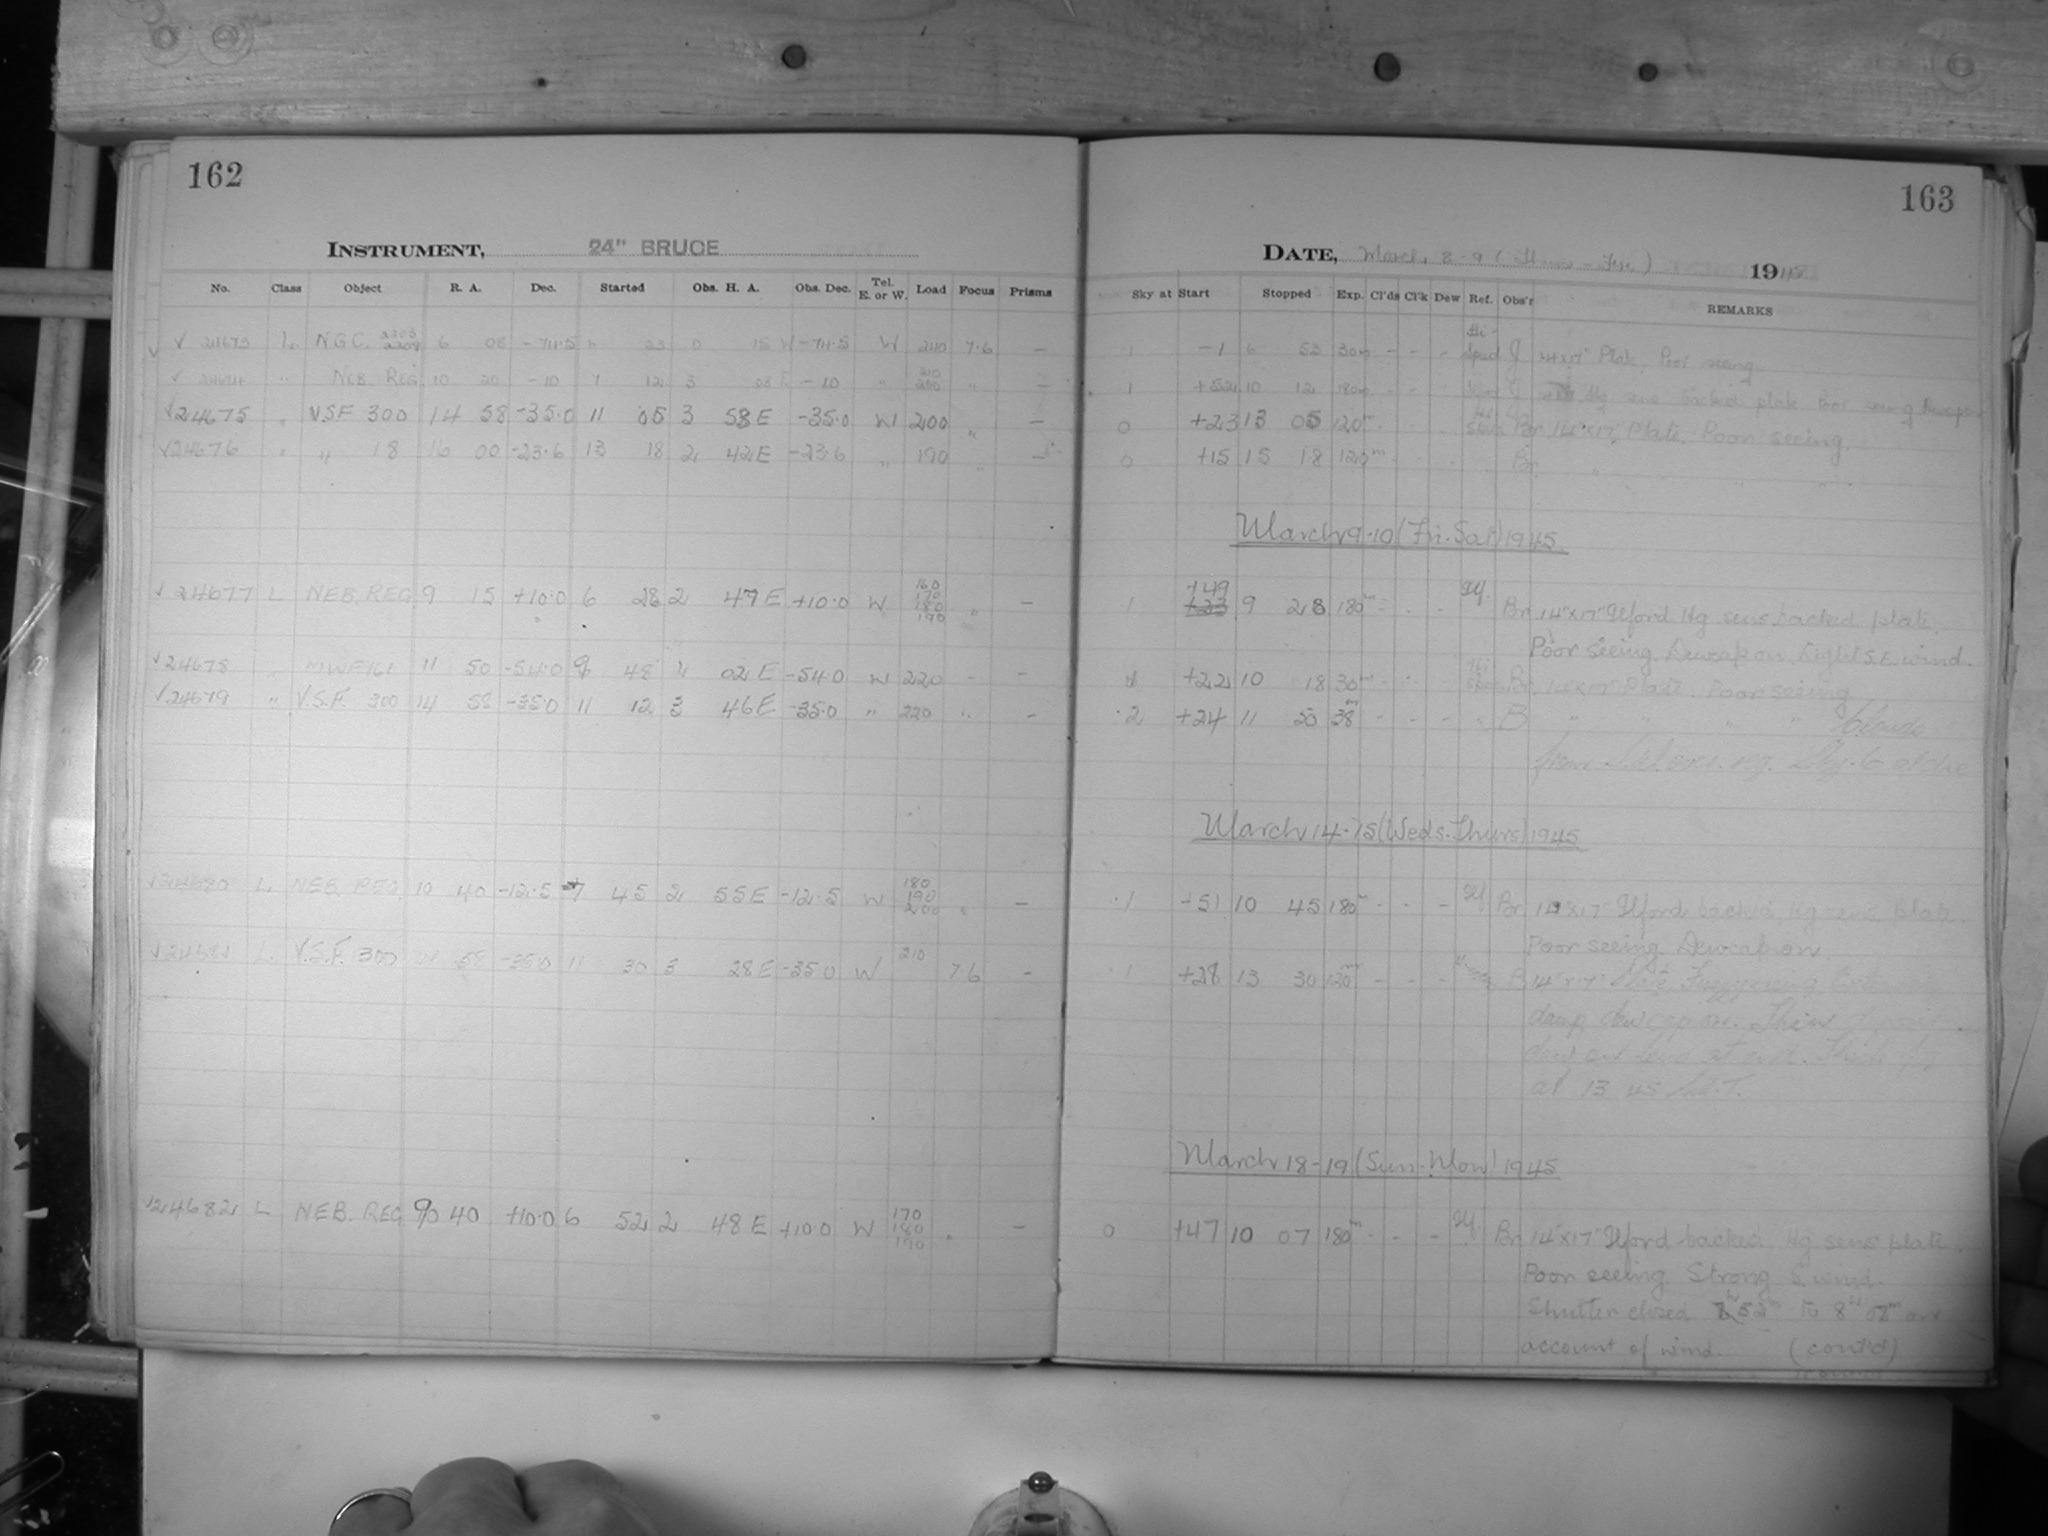 162
INSTRUMENT, 24" BRUCE
No. Class Object R. A. Dec. Started Obs. H. A. Obs. Dec. Tel. E. or W. Load Focus Prisms
√ 24673 L NGC 6 08 -74.5 6 23 0 15 W -74.5 W 240 7.6 -
√ 24674 " NEB. REG. 10 20 -10 7 12 3 08 E -10 " 210 200 " -
√24675 " VSF 300 14 58 -35.0 11 05 3 53 E -35.0 W 200 " -
√24676 " " 18 16 00 -23.6 13 18 2 42 E -23.6 " 190 " -
√24677 L NEB. REG 9 15 +10.0 6 28 2 47 E +10.0 W 160 170 180 190 " -
√24678 " MWF161 11 50 -54.0 9 48 2 02 E -54.0 W 220 - -
√24679 " V.S.F. 300 14 58 -35.0 11 12 3 46 E -35.0 " 220 " -
√24680 L NEB. REG. 10 40 -12.5 7 45 2 55 E -12.5 W 180 190 200 " -
√24681 L. V.S.F. 300 14 58 -35.0 11 30 3 28 E -35.0 W 210 7.6 -
√24682 L NEB. REG 9 40 +10.0 6 52 2 48 E +10.0 W 170 180 190 " -
163
DATE, March 8-9 (Thurs - Fri) 1945
Sky at Start Stopped Exp. Cl'ds Cl'k Dew Ref. Obs'r REMARKS
1 -1 6 53 30m - - - Hi-Speed J 14x17" Plate, Poor seeing
1 +52 10 12 180m - - - J Hg sens backed plate Poor seeing Dewcap on
0 +23 13 05 120m - - - Br. 14"x17" Plate. Poor seeing.
0 +15 15 18 120m - - - " Br. " " "
March 9-10 (Fri.-Sat) 1945.
1 +49 9 28 180m - - - Ilf. Br. 14"x17" Ilford Hg sens. backed plate.
Poor seeing. Dewcap on. Light S.E. wind.
1 +22 10 18 30m - - Hi Speed Br. 14"x17" Plate. Poor seeing
2 +24 11 50 38m - - - " B " " " " Clouds
from
March 14-15 (Weds.-Thurs) 1945
1 +51 10 45 180m - - - Ilf Br. 14"x17" Ilford backed Hg sens. plate.
Poor seeing. Dewcap on.
1 +28 13 30 120m - - - B 14"x17" Plate
damp dew cap on. Thin
dew on lens at end.
at 13 45
March 18-19 (Sun.-Mon) 1945
0 +47 10 07 180m - - - Ilf. Br. 14"x17" Ilford backed Hg sens plate.
Poor seeing. Strong S. wind.
Shutter closed 7h 52m to 8h 07m on
account of wind. (cont'd)